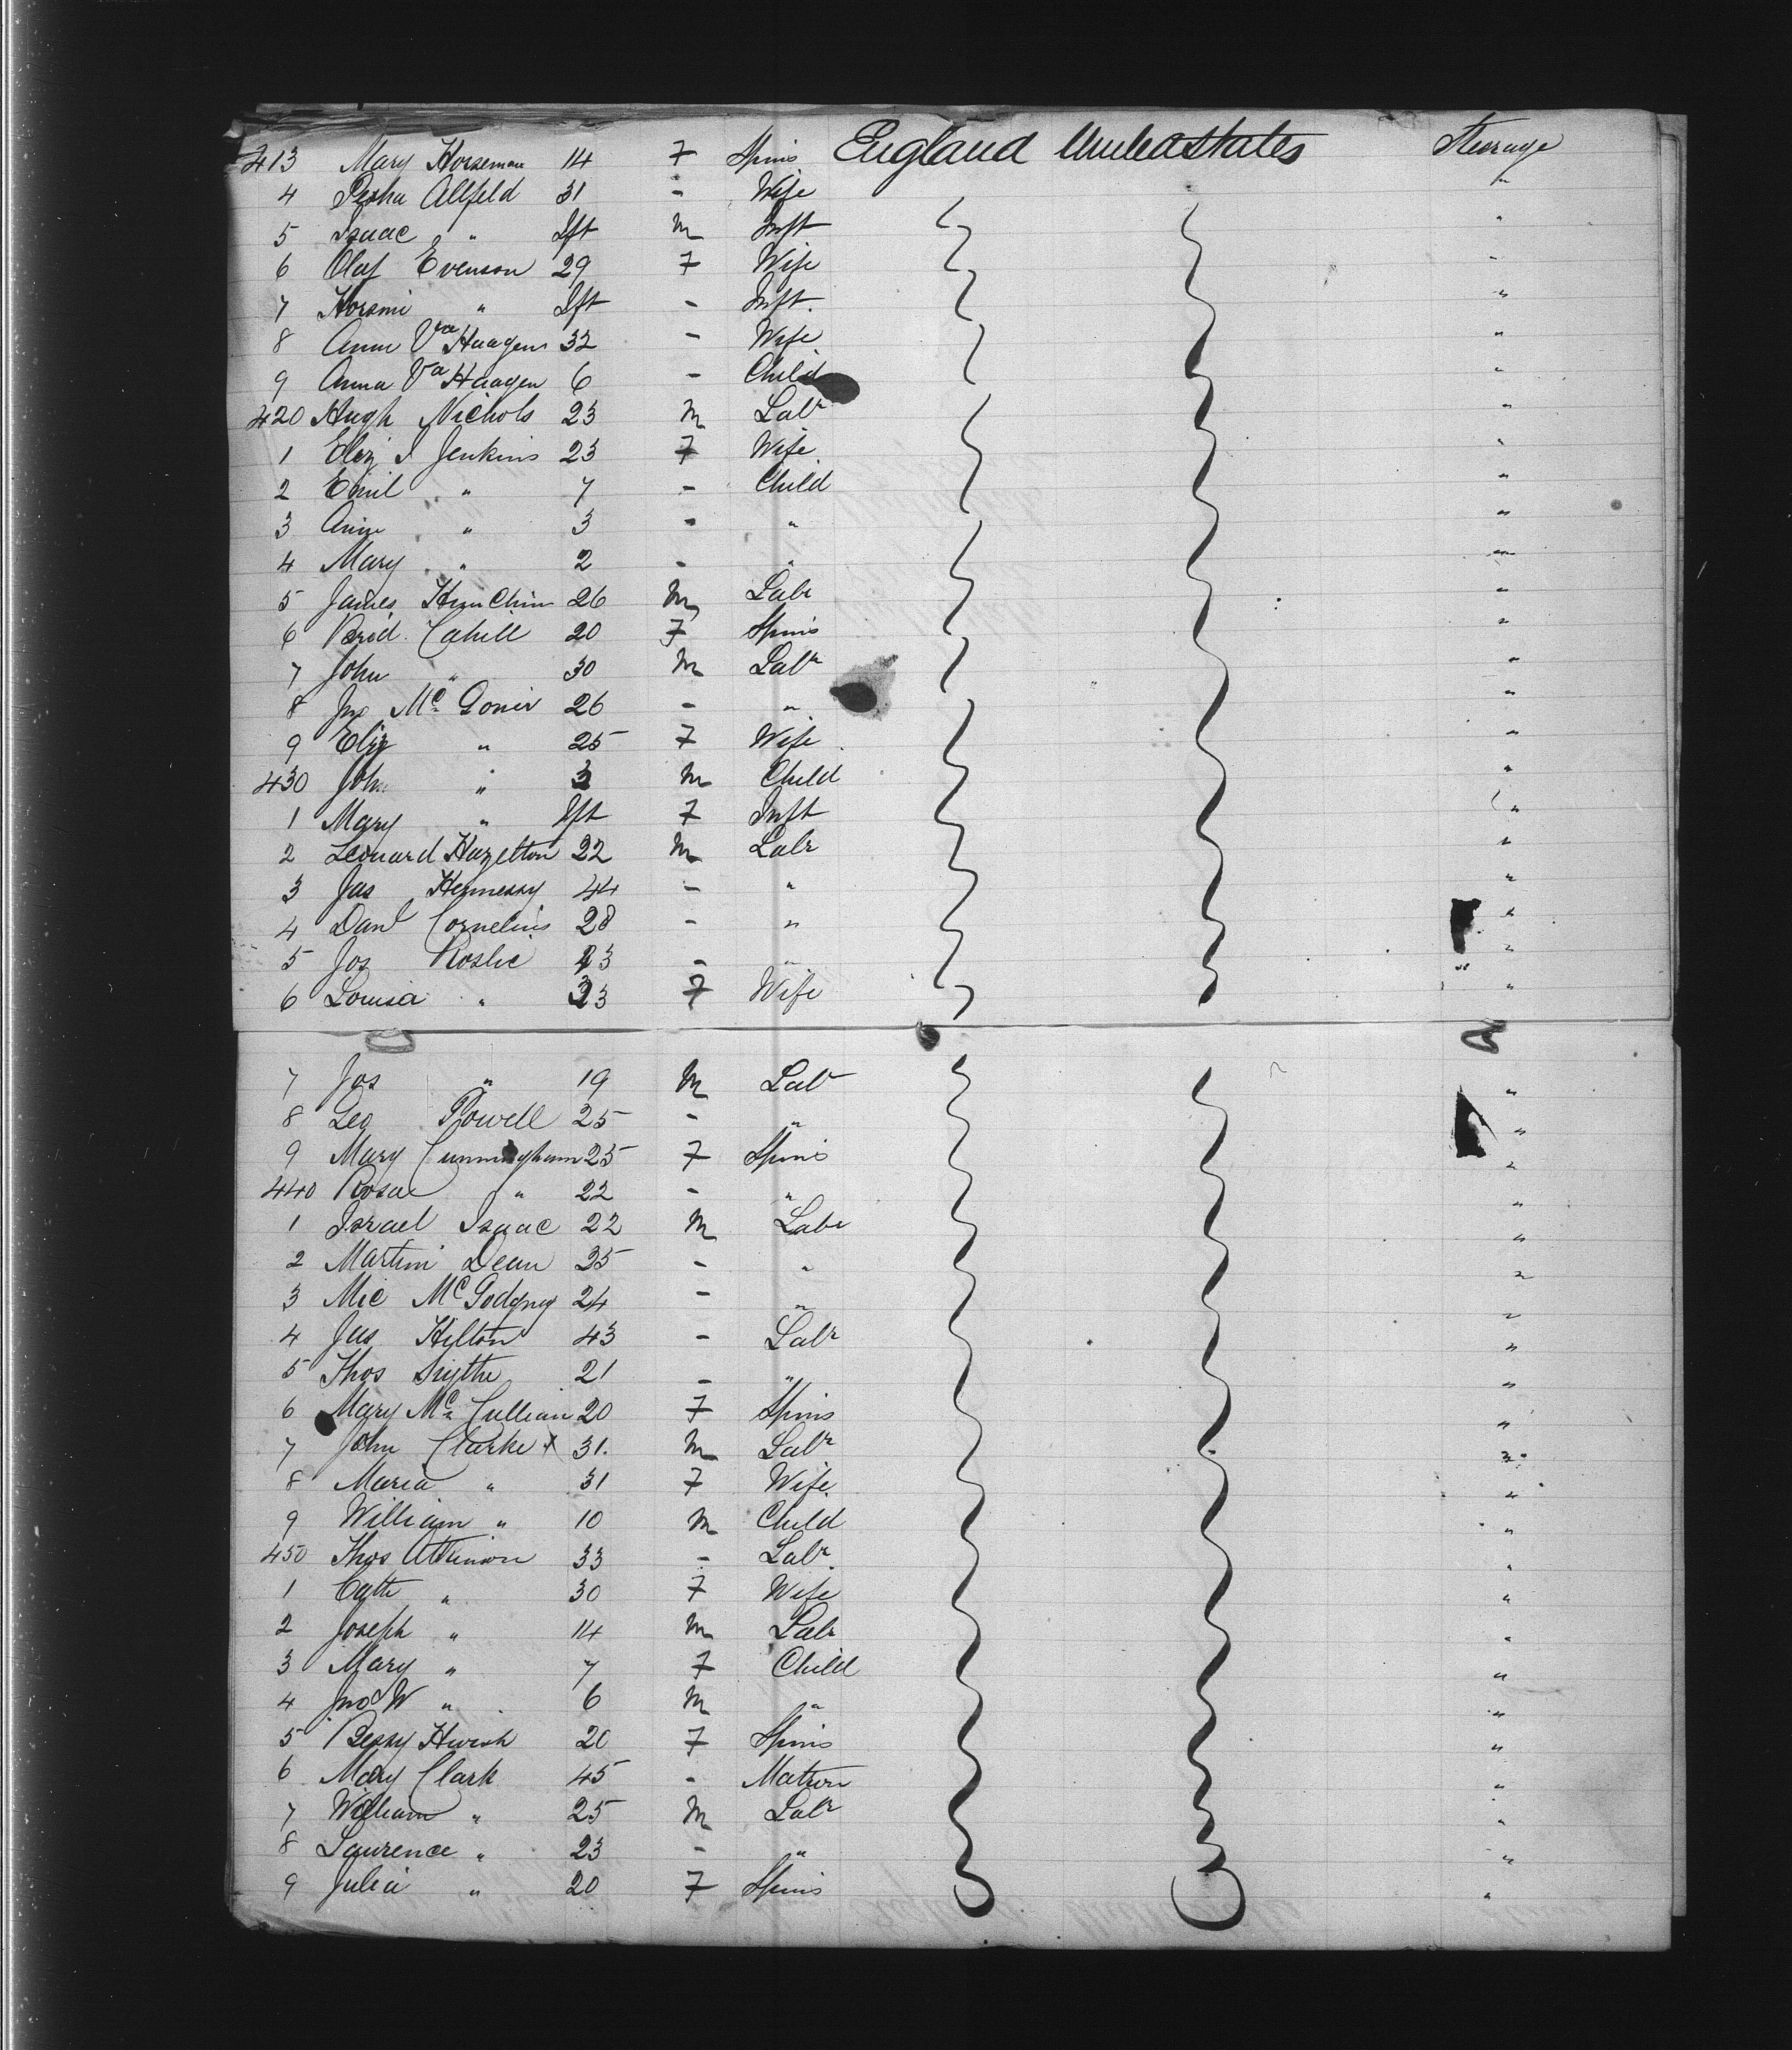 413 Mary Horseman 14 F Spins England United States Steerage
4 Pesha Allfeld 31 - Wife "
5 Isaac " Ift M Inft "
6 Olaf Evenson 29 F Wife "
7 " Ift - Inft. "
8 Anna Va Haagen 32 - Wife "
9 Anna Va Haagen 6 - Child "
420 Hugh Nichols 23 M Labr "
1 Eliz J Jenkins 23 F Wife "
2 Emil " 7 - Child "
3 Ann " 3 - " "
4 Mary " 2 - " "
5 James 26 M Labr "
6 Brid. Cahill 20 F Spins "
7 John " 30 M Labr "
8 Jno Mc 26 - " "
9 Eliz " 25 F Wife "
430 John " 3 M Child "
1 Mary " Ift F Inft "
2 Leonard Hazelton 22 M Labr "
3 Jas Hennessy 44 - " "
4 Danl Cornelius 28 - " "
5 Jos Roslic 43 - " "
6 Louisa " 33 F Wife "
7 Jos " 19 M Labr "
8 Geo Powell 25 - " "
9 Mary Cunningham 25 F Spins "
440 Rosa " 22 - " "
1 Israel Isaac 22 M Labr "
2 Martin Dean 35 - " "
3 Mic 24 - " "
4 Jas Hilton 43 - Labr "
5 Thos 21 - " "
6 Mary Mc Cullian 20 F Spins "
7 John Clarke x 31. M Labr "
8 Maria " 31 F Wife "
9 William " 10 M Child "
450 Thos Atkinson 33 - Labr "
1 Cath " 30 F Wife "
2 Joseph " 14 M Labr "
3 Mary " 7 F Child "
4 Jno W " 6 M " "
5 Bessy 20 F Spins "
6 Mary Clark 45 - Matron "
7 William " 25 M Labr "
8 Laurence " 23 - " "
9 Julia " 20 F Spins "